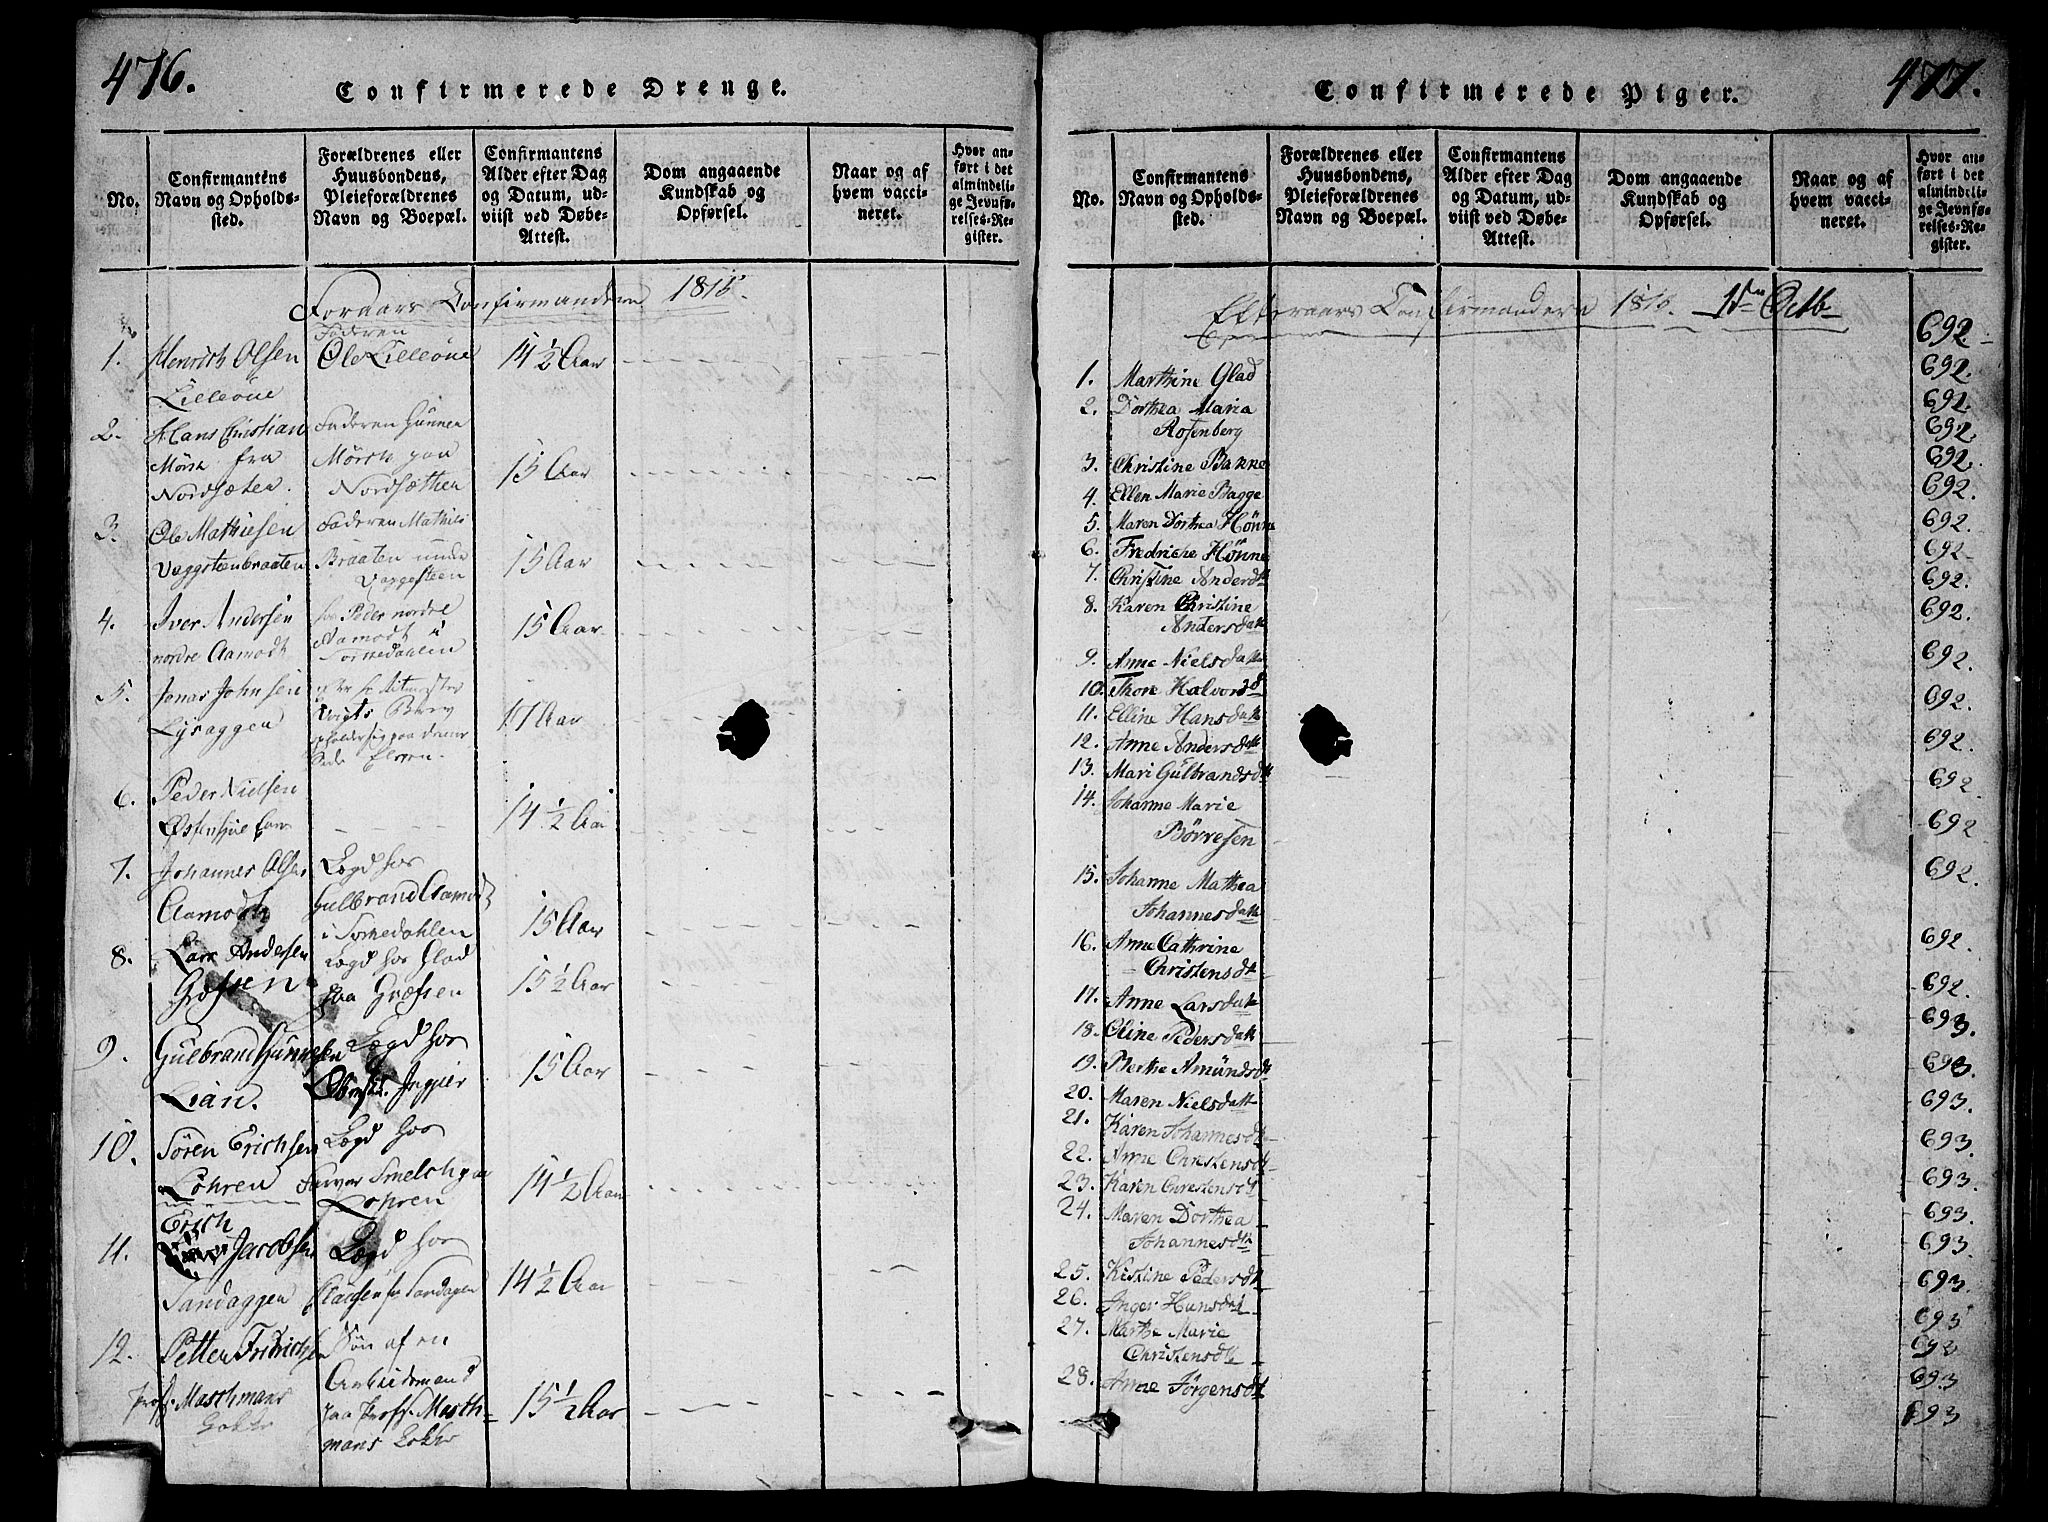 476.
Confirmerede Drenge.
No.
Confirmantens
Navn og Opholds-
sted.
Forældrenes eller
Huusbondens,
Pleieforældrenes
Navn og Boepæl.
Confirmantens
Alder efter Dag
og Datum, ud-
viist ved Døbe-
Attest.
Dom angaaende
Kundskab og
Opførsel.
Naar og af
hvem vacci-
neret.
Hvor an-
ført i det
almindeli-
ge Jevnfø-
relses-Re-
gister.
Foraars Confirmandere 1815.
1. Henrich Olsen
Lilleöue
Faderen
Ole Lilleöue
14 1/2 Aar
2. Hans Christian
Mörch fra
Nordsæten.
Faderen Gunner
Mörch paa
Nordsæthen
15 Aar
3. Ole Mathiesen
Vaggsteenbraaten
Faderen Mathis
Braaten under
Vaggesteen
15 Aar
4. Iver Andersen
nordre Aamodt
hos Peder nordre
Aamodt i
Sörkedahlen
15 Aar
5. Jonas Johnsen
Lysaggen
17 Aar
6. Peder Nielsen
14 1/2 Aar
7. Johannes Olsen
Aamodt
Lægd hos
Gulbrand Aamodt
i Sörkedahlen
15 Aar
8. Lars Andersen
Græssen
Lægd hos Glad
paa Græssen
15 1/2 Aar
9. Gulbrand Gunnersen
Lian.
Lægd hos
15 Aar
10. Sören Erichsen
Löhren
Lægd hos
Farver Smelch paa
Löhren
14 1/2 Aar
11. Erich
Jacobsen
Sandaggen
Lægd hos
14 1/2 Aar
12. Petter Fridrichsen
Prof. Maschmans
Lökke
Sön af en
Arbeidsmand
paa Proff. Masch-
mans Lökke
15 1/2 Aar
477.
Confirmerede Piger.
No.
Confirmantens
Navn og Opholds-
sted.
Forældrenes eller
Huusbondens,
Pleieforældrenes
Navn og Boepæl.
Confirmantens
Alder efter Dag
og Datum, ud-
viist ved Døbe-
Attest.
Dom angaaende
Kundskab og
Opførsel.
Naar og af
hvem vacci-
neret.
Hvor an-
ført i det
almindeli-
ge Jevnfø-
relses-Re-
gister.
Efteraars Confirmandere 1815. 1ste Octb
692.
1. Marthine Glad 692.
2. Dorthea Maria 692
Rosenberg 692.
3. Christine Bakke 692.
4. Ellen Marie Bagge 692.
5. Maren Dorthea Hönne 692.
6. Fredriche Hönne 692
7. Christine Andersdtt 692.
8. Karen Christine 692.
Andersdatt
9. Anne Nielsdatter 692.
10. Thore Halvorsd 692.
11. Elline Hansdatt
12. Anne Andersdatt 692.
13. Mari Gulbrandsdtt 692.
14. Johanne Marie 692
Börresen
15. Johanne Mathea 692.
Johannesdatt
16. Anne Cathrine 692.
Christensdtt 692.
17. Anne Larsdatt
18. Oline Pedersdatt 693.
19. Berthe Amundsdtt 693.
20. Maren Nielsdatt 693.
21. Karen Johannesdtt 693.
22. Anne Christensdtt
23. Karen Christensdtt 693.
24. Maren Dorthea 693.
Johannesdtt 693.
25. Kistine Pedersdtt 693.
26. Inger Hansdatt
27. Marthe Marie 693
Christensdtt
28. Anne Jörgensdtt 693
693